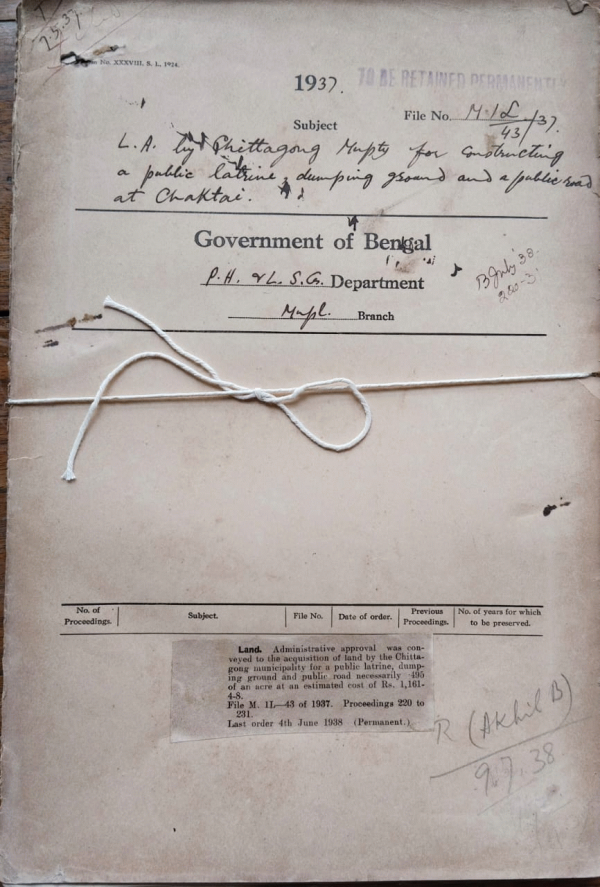 7.5.37
No. XXXVIII. S. L., 1924.
TO BE RETAINED PERMANENTLY
1937.
File No. M.1L/43/37.
Subject
L.A. by Chittagong Mupty for constructing
a public latrine, dumping ground and a public road
at Chaktai.
Government of Bengal
P.H. & L.S.G. Department
Mupl. Branch
B July '38
220-3
No. of Proceedings. Subject. File No. Date of order. Previous Proceedings. No. of years for which to be preserved.
Land. Administrative approval was con-
veyed to the acquisition of land by the Chitta-
gong municipality for a public latrine, dump-
ing ground and public road necessarily ·495
of an acre at an estimated cost of Rs. 1,161-
4-8.
File M. 1L—43 of 1937. Proceedings 220 to
231.
Last order 4th June 1938 (Permanent.)
R (Akhil B)
9.7.38